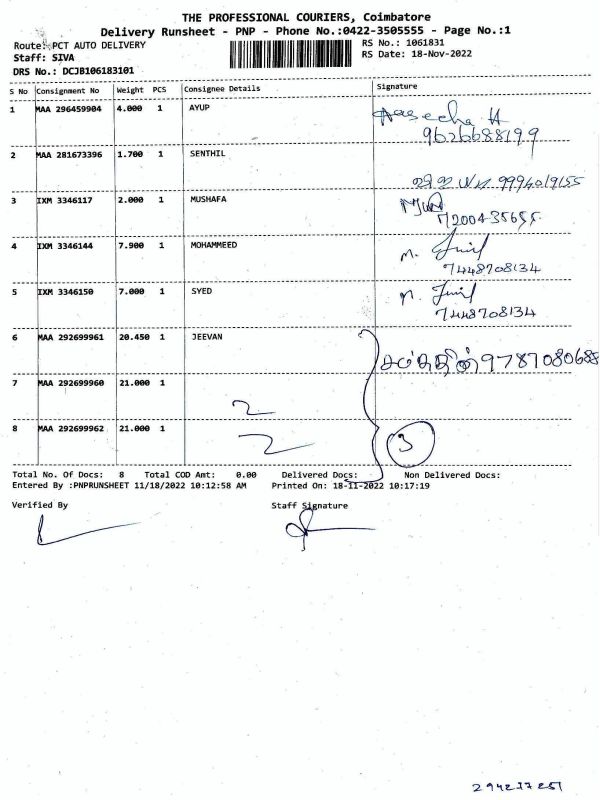 THE PROFESSIONAL COURIERS, Coimbatore
Delivery Runsheet - PNP - Phone No.:0422-3505555 - Page No.:1
Route: PCT AUTO DELIVERY RS No.: 1061831
Staff: SIVA RS Date: 18-Nov-2022
DRS No.: DCJB106183101
S No Consignment No Weight PCS Consignee Details Signature
1 MAA 296459904 4.000 1 AYUP
9626688199
2 MAA 281673396 1.700 1 SENTHIL
9994019155
3 IXM 3346117 2.000 1 MUSHAFA
7200435655
4 IXM 3346144 7.900 1 MOHAMMEED M.
7448708134
5 IXM 3346150 7.000 1 SYED M.
7448708134
6 MAA 292699961 20.450 1 JEEVAN
9787080688
7 MAA 292699960 21.000 1
2
8 MAA 292699962 21.000 1
2 3
Total No. Of Docs: 8 Total COD Amt: 0.00 Delivered Docs: Non Delivered Docs:
Entered By :PNPRUNSHEET 11/18/2022 10:12:58 AM Printed On: 18-11-2022 10:17:19
Verified By Staff Signature